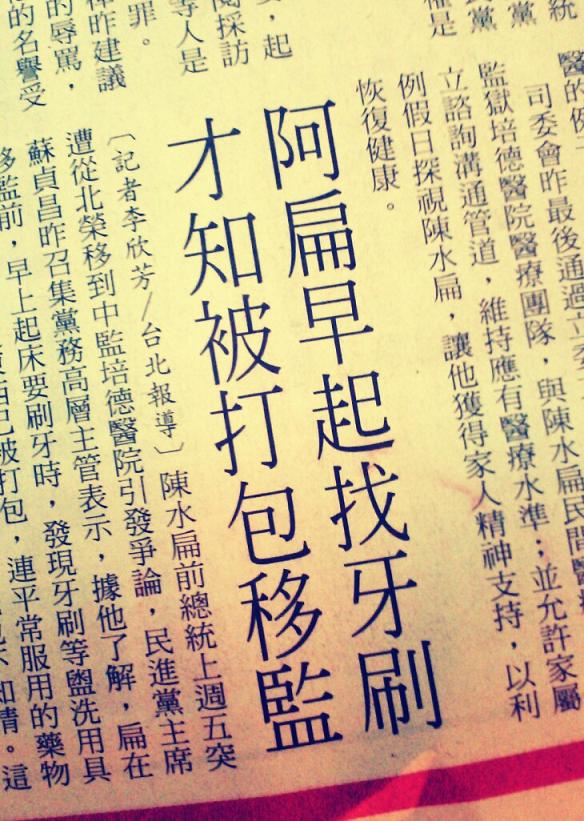 統
黨
黨
民黨
權是
醫的例
司委會昨最後通過立委
監獄培德醫院醫療團隊，與陳水扁民間醫
立諮詢溝通管道，維持應有醫療水準；並允許家屬
例假日探視陳水扁，讓他獲得家人精神支持，以利
恢復健康。
，起
採訪
等人是
罪。
昨建議
的辱罵，
的名譽受
阿扁早起找牙刷
才知被打包移監
〔記者李欣芳／台北報導〕陳水扁前總統上週五突
遭從北榮移到中監培德醫院引發爭論，民進黨主席
蘇貞昌昨召集黨務高層主管表示，據他了解，扁在
移監前，早上起床要刷牙時，發現牙刷等盥洗用具
已被打包，連平常服用的藥物
知情。這